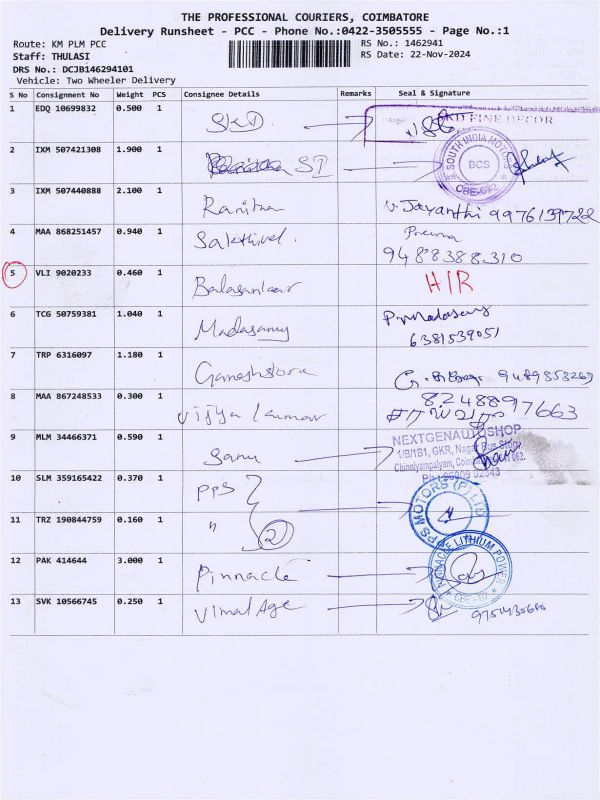 THE PROFESSIONAL COURIERS, COIMBATORE
Delivery Runsheet - PCC - Phone No.:0422-3505555 - Page No.:1
Route: KM PLM PCC RS No.: 1462941
Staff: THULASI RS Date: 22-Nov-2024
DRS No.: DCJB146294101
Vehicle: Two Wheeler Delivery
S No Consignment No Weight PCS Consignee Details Remarks Seal & Signature
1 EDQ 10699832 0.500 1 SKD FINE DECOR
2 IXM 507421308 1.900 1 SI SOUTH INDIA MOTO BCS CBE-642
3 IXM 507440888 2.100 1 Ranitha V. Jayanthi 9976139722
4 MAA 868251457 0.940 1 Sakthivel. Prema
9488388310
5 VLI 9020233 0.460 1 Balasankar H/R
6 TCG 50759381 1.040 1 Madasamy P. Madasamy
6381539051
7 TRP 6316097 1.180 1 Ganeshstore 9489853269
8 MAA 867248533 0.300 1 Vijya kumar 8248897663
9 MLM 34466371 0.590 1 Sanu NEXTGENAUTOSHOP
1/B/1B1, GKR, Nagar Bus Stop,
Chinniyampalyam,
10 SLM 359165422 0.370 1 PPS PS MOTORS (P) LTD
11 TRZ 190844759 0.160 1 " 2
12 PAK 414644 3.000 1 Pinnacle PINNACLE LITHIUM POWER CBE - 62
13 SVK 10566745 0.250 1 Vimal Age